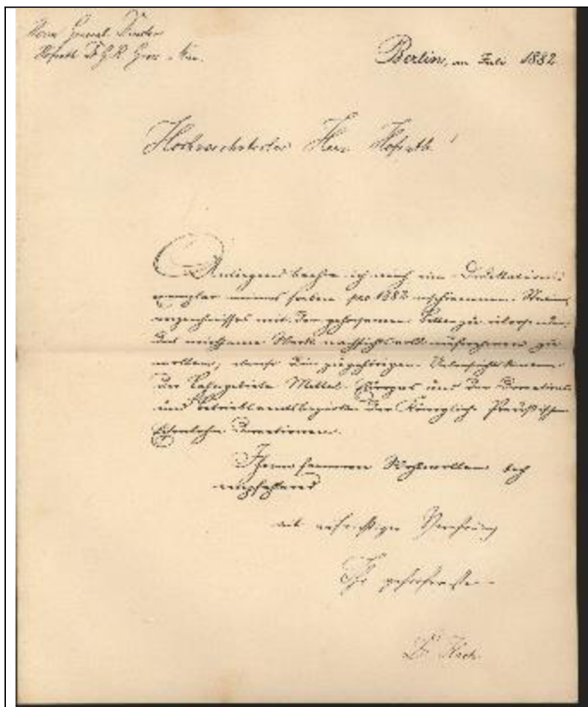 Herrn General-
Hofrath
Berlin, im Juli 1882
Hochverehrtester Herr Hofrath!
Anliegend beehre ich mich ein Dedikations-
exemplar meines soeben pro 1882 erschienenen
mit der gehorsamen Bitte zu übersenden,
das mühsame Werk nachsichtsvoll aufnehmen zu
wollen, die zugehörigen
der Bahngebiete Mittel-Europas und der Directions-
und Betriebsamtsbezirke der Königlich Preußischen
Eisenbahn-Directionen.
Ihrem ferneren Wohlwollen sich
empfehlend
mit aufrichtiger Verehrung
Ihr gehorsamster
Dr. Koch